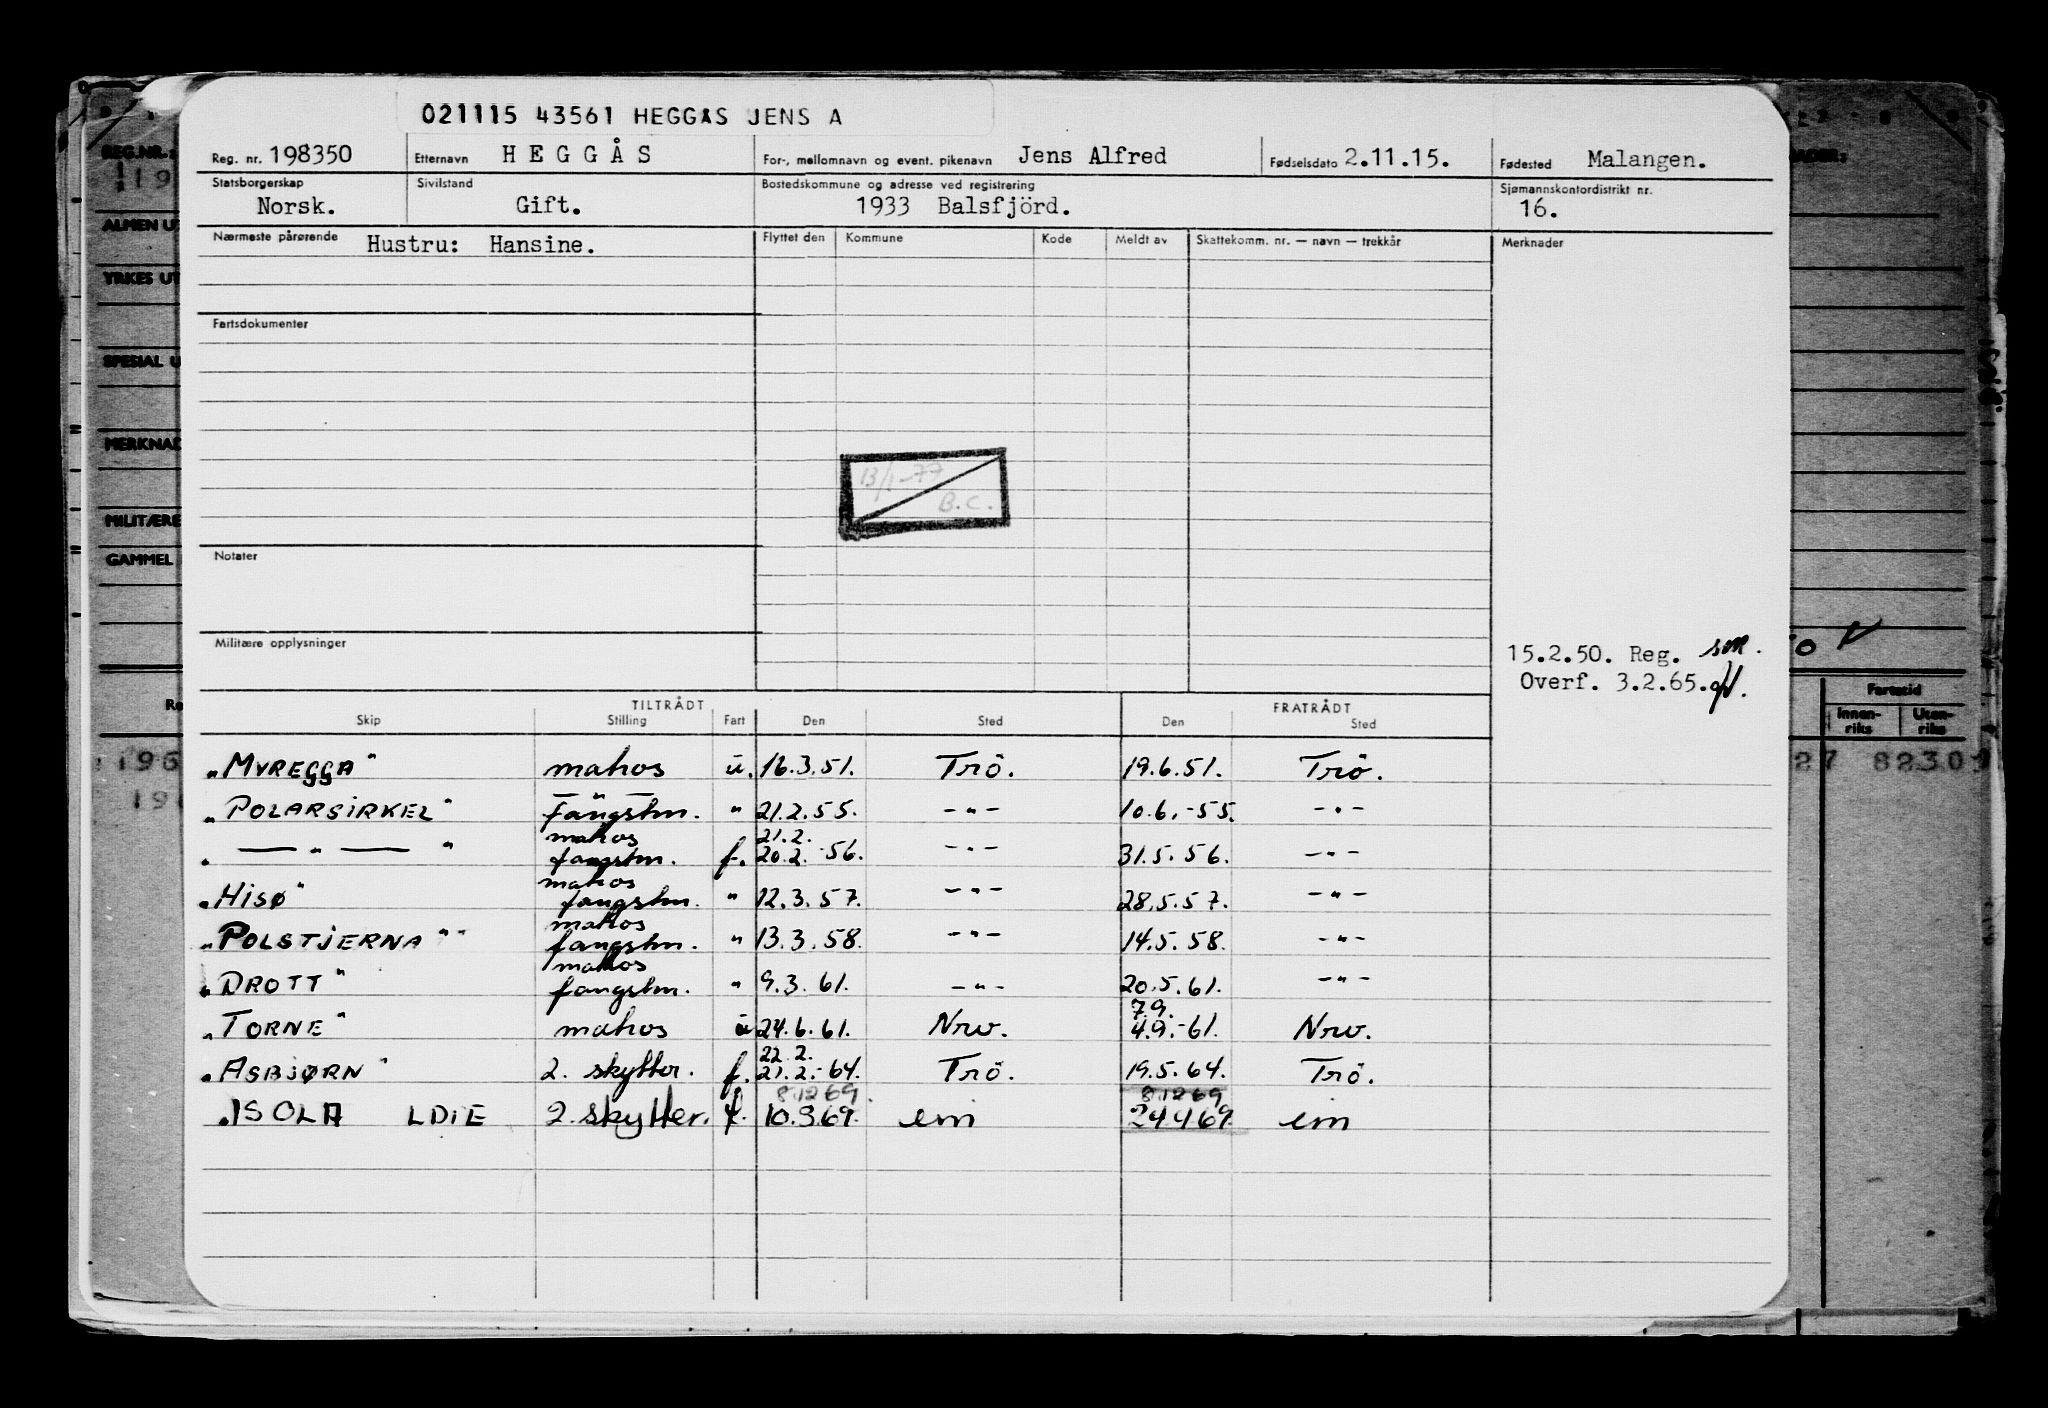 021115 43561 HEGGÅS JENS A
Reg. nr. 198350 Etternavn HEGGÅS For-, mellomnavn og event. pikenavn Jens Alfred Fødselsdato 2.11.15. Fødested Malangen.
Statsborgerskap Sivilstand Bostedskommune og adresse ved registrering Sjømannskontordistrikt nr.
Norsk. Gift. 1933 Balsfjörd. 16.
Nærmeste pårørende Hustru: Hansine. Flyttet den Kommune Kode Meldt av Skattekomm. nr. — navn — trekkår Merknader
Fartsdokumenter
13/1-77
B.C.
Notater
Militære opplysninger
15.2.50. Reg.
Overf. 3.2.65.
TILTRÅDT FRATRÅDT
Skip Stilling Fart Den Sted Den Sted
"MYREGGA" matros u. 16.3.51. Trö. 19.6.51. Trö.
"POLARSIRKEL" Fangstm. " 21.2.55. -"- 10.6.-55. -"-
matros 21.2.
" — " — " fangstm. f. 20.2.-56. -"- 31.5.56. -"-
matros
"HISØ" fangstm. " 12.3.57. -"- 28.5.57. -"-
matros
"POLSTJERNA" fangstm. " 13.3.58. -"- 14.5.58. -"-
matros
"DROTT" fangstm. " 9.3.61. -"- 20.5.61. -"-
7.9.
"TORNE" matros u 24.6.61. Nrv. 4.9.-61. Nrv.
22.2.
"ASBJØRN" 2. skytter. f. 21.2.-64. Trö. 19.5.64. Trö.
81269. 81269
ISOLA LDIE 2. skytter. f. 10.3.69. em 24469. em
REG.NR.:
ALMEN UT
YRKES UT
SPESIAL U
MERKNAD
MILITÆRE
GAMMEL
Fartstid
Innen-riks Uten-riks